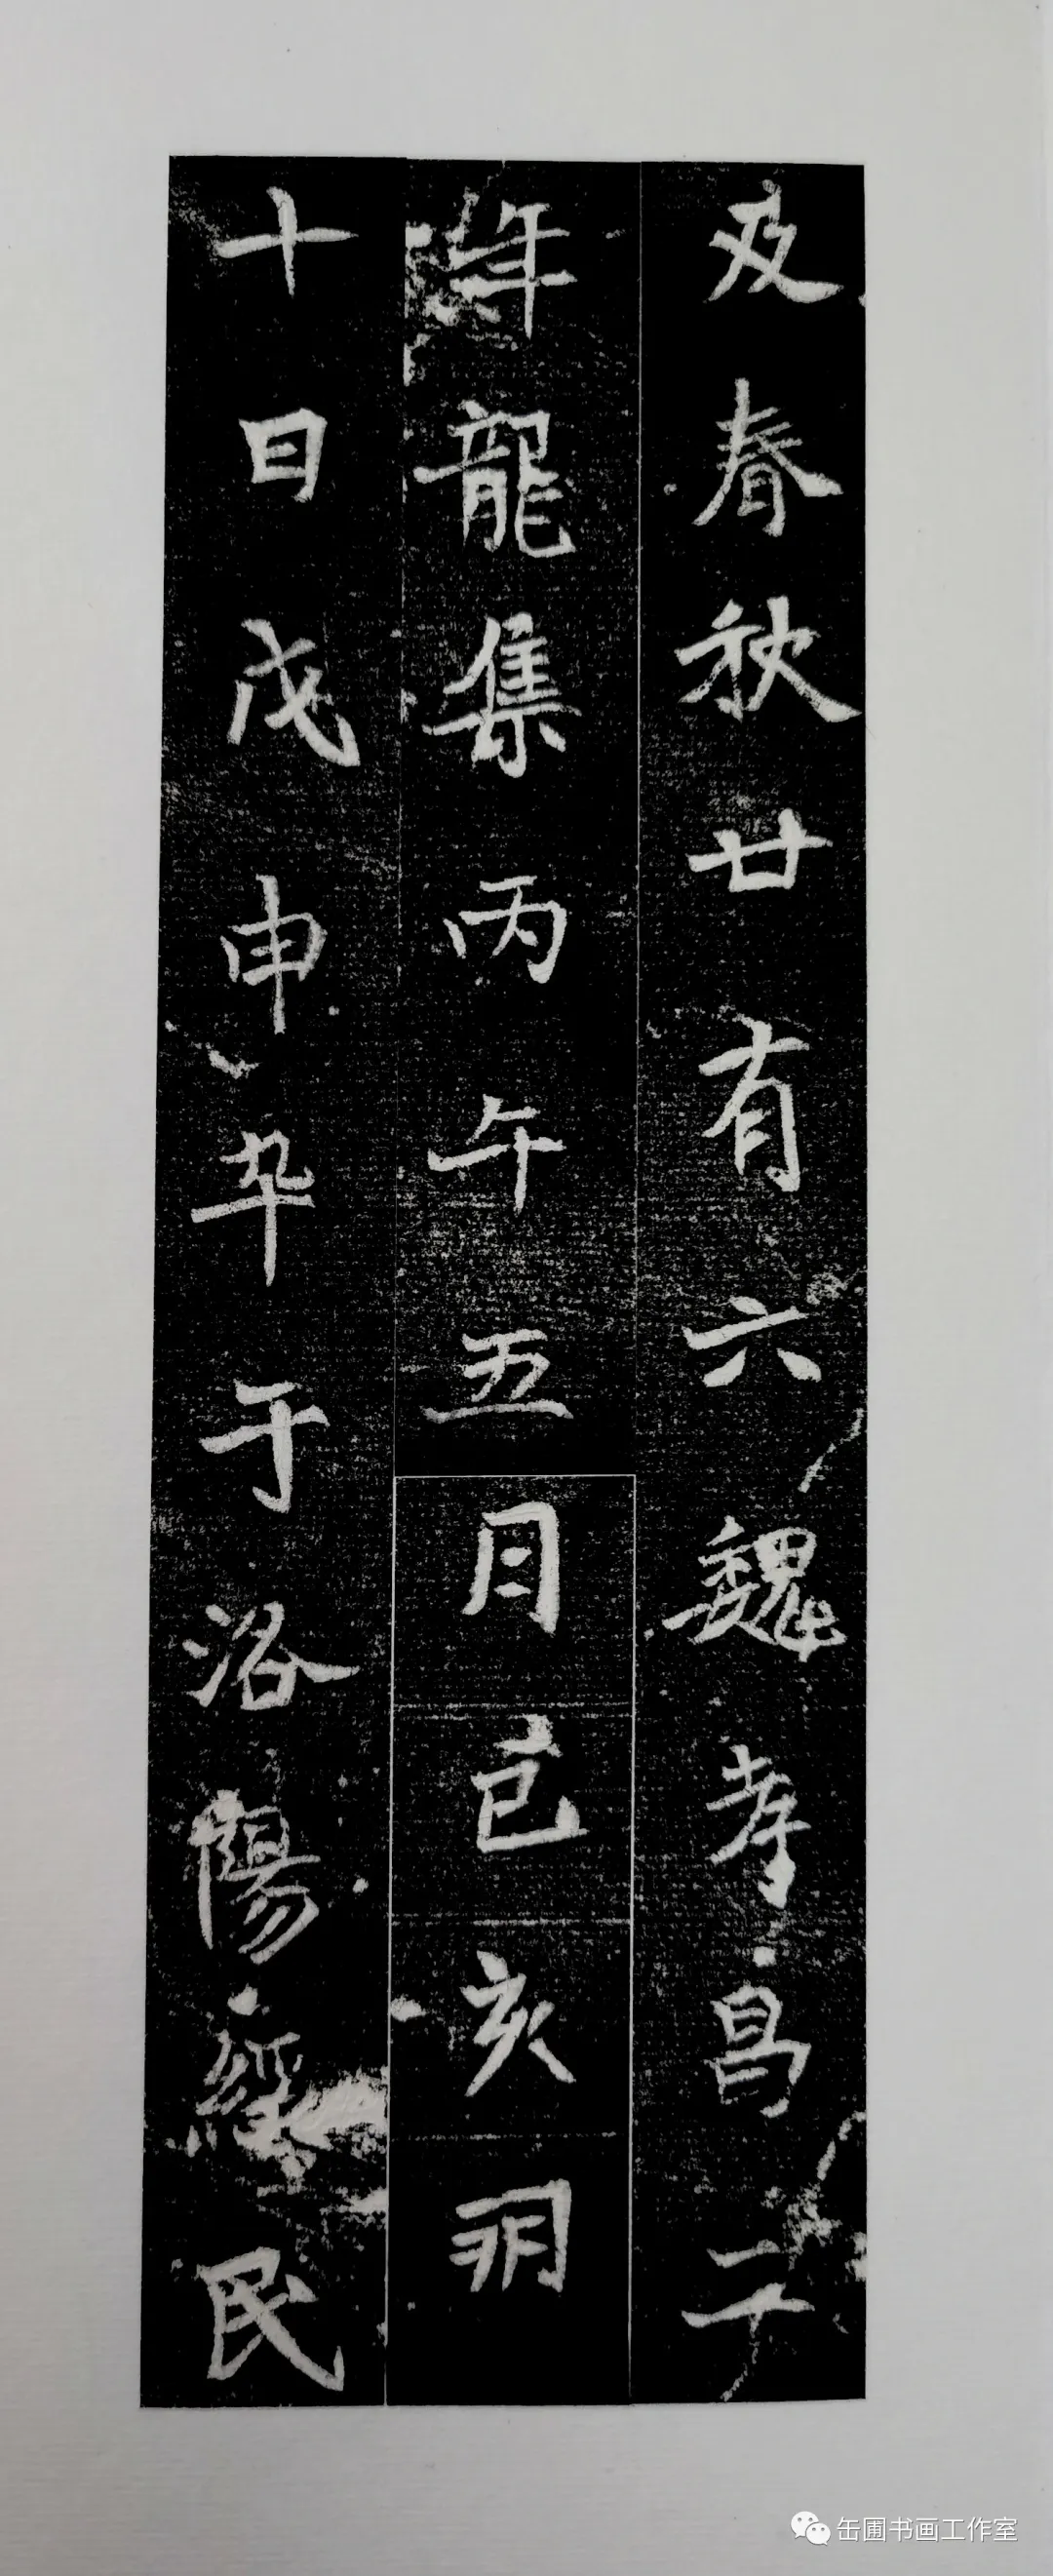 及春秋廿有六魏孝昌二
年龍集丙午五月己亥朔
十日戊申卒于洛陽綏民
缶圃书画工作室